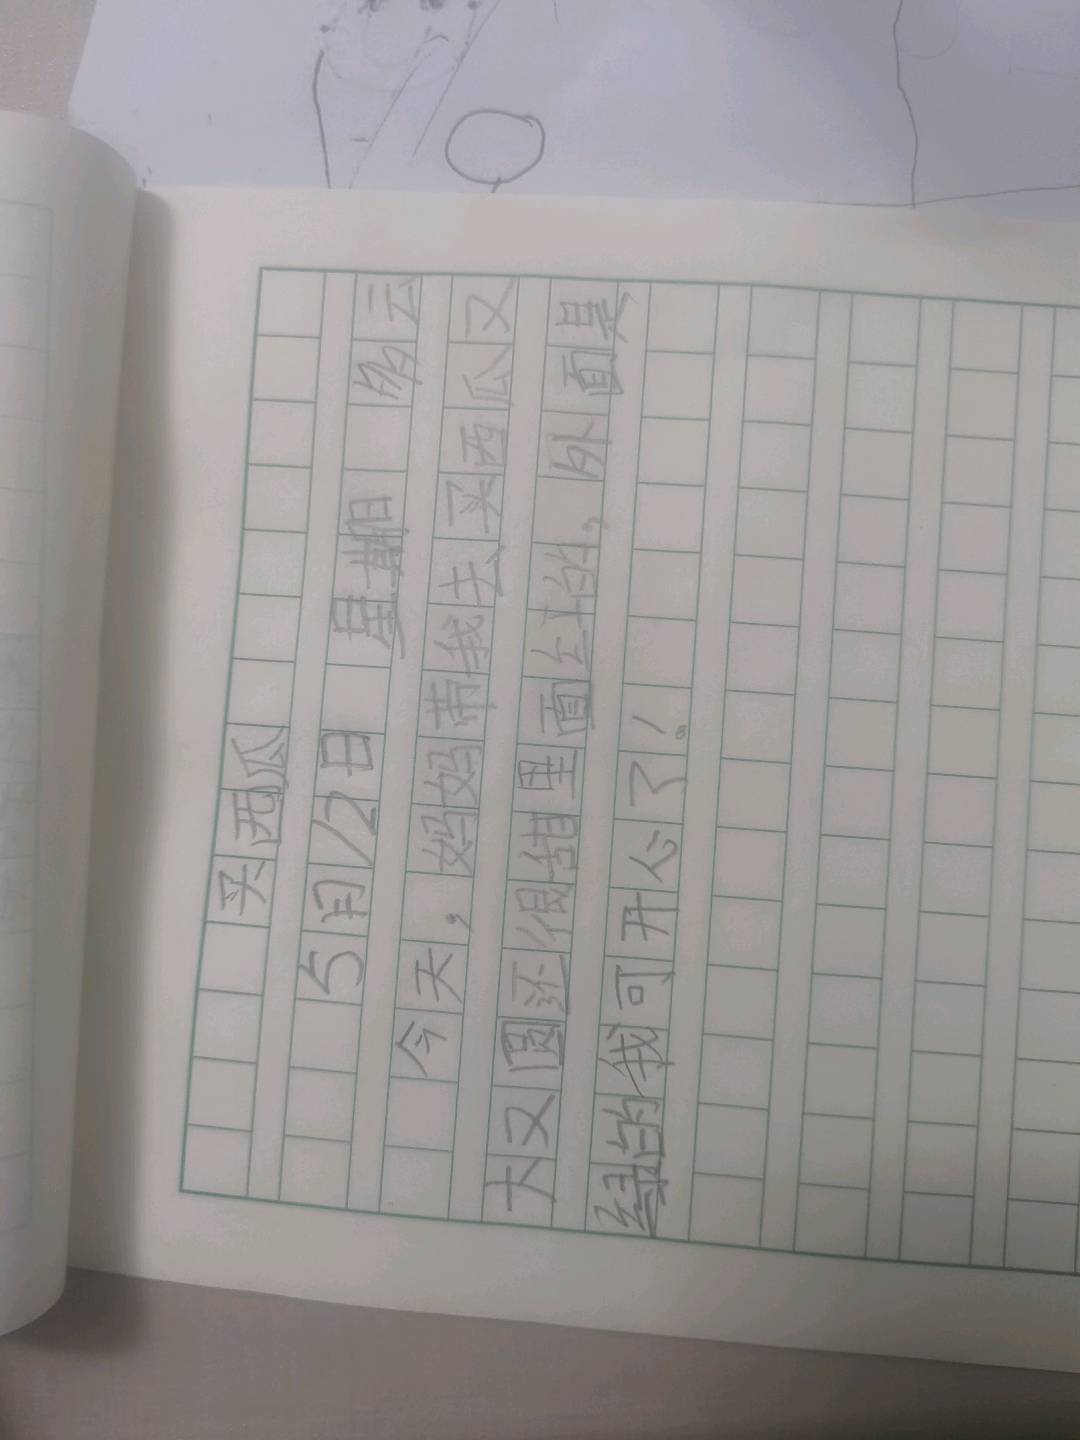 买西瓜
5月12日 星期日 多云
今天，妈妈带我去买西瓜又
大又圆还很甜里面红的，外面是
绿的我可开心了！